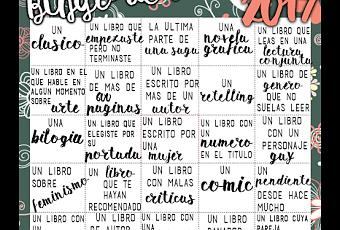 2017
UN clasico
UN LIBRO QUE empezaste PERO NO TERMINASTE
LA ÚLTIMA PARTE DE una saga
UNA novela grafica
UN LIBRO QUE LEAS EN UNA lectura conjunta
UN LIBRO EN EL QUE HABLE EN ALGÚN MOMENTO SOBRE arte
UN LIBRO DE MAS DE paginas
UN LIBRO ESCRITO POR MAS DE UN autor
UN retelling
UN LIBRO DE genero QUE NO SUELAS LEER
UNA bilogia
UN LIBRO QUE ELEGISTE POR SU portada
UN LIBRO ESCRITO POR UNA mujer
UN LIBRO CON UN numero EN EL TITULO
UN LIBRO CON UN PERSONAJE gay
UN LIBRO SOBRE feminismo
UN libro QUE TE HAYAN RECOMENDADO
UN LIBRO CON MALAS criticas
UN comic
UN pendiente DESDE HACE MUCHO
UN LIBRO CON
UN LIBRO DE AUTOR
UN LIBRO CON UN
UN LIBRO
UN LIBRO CUYA